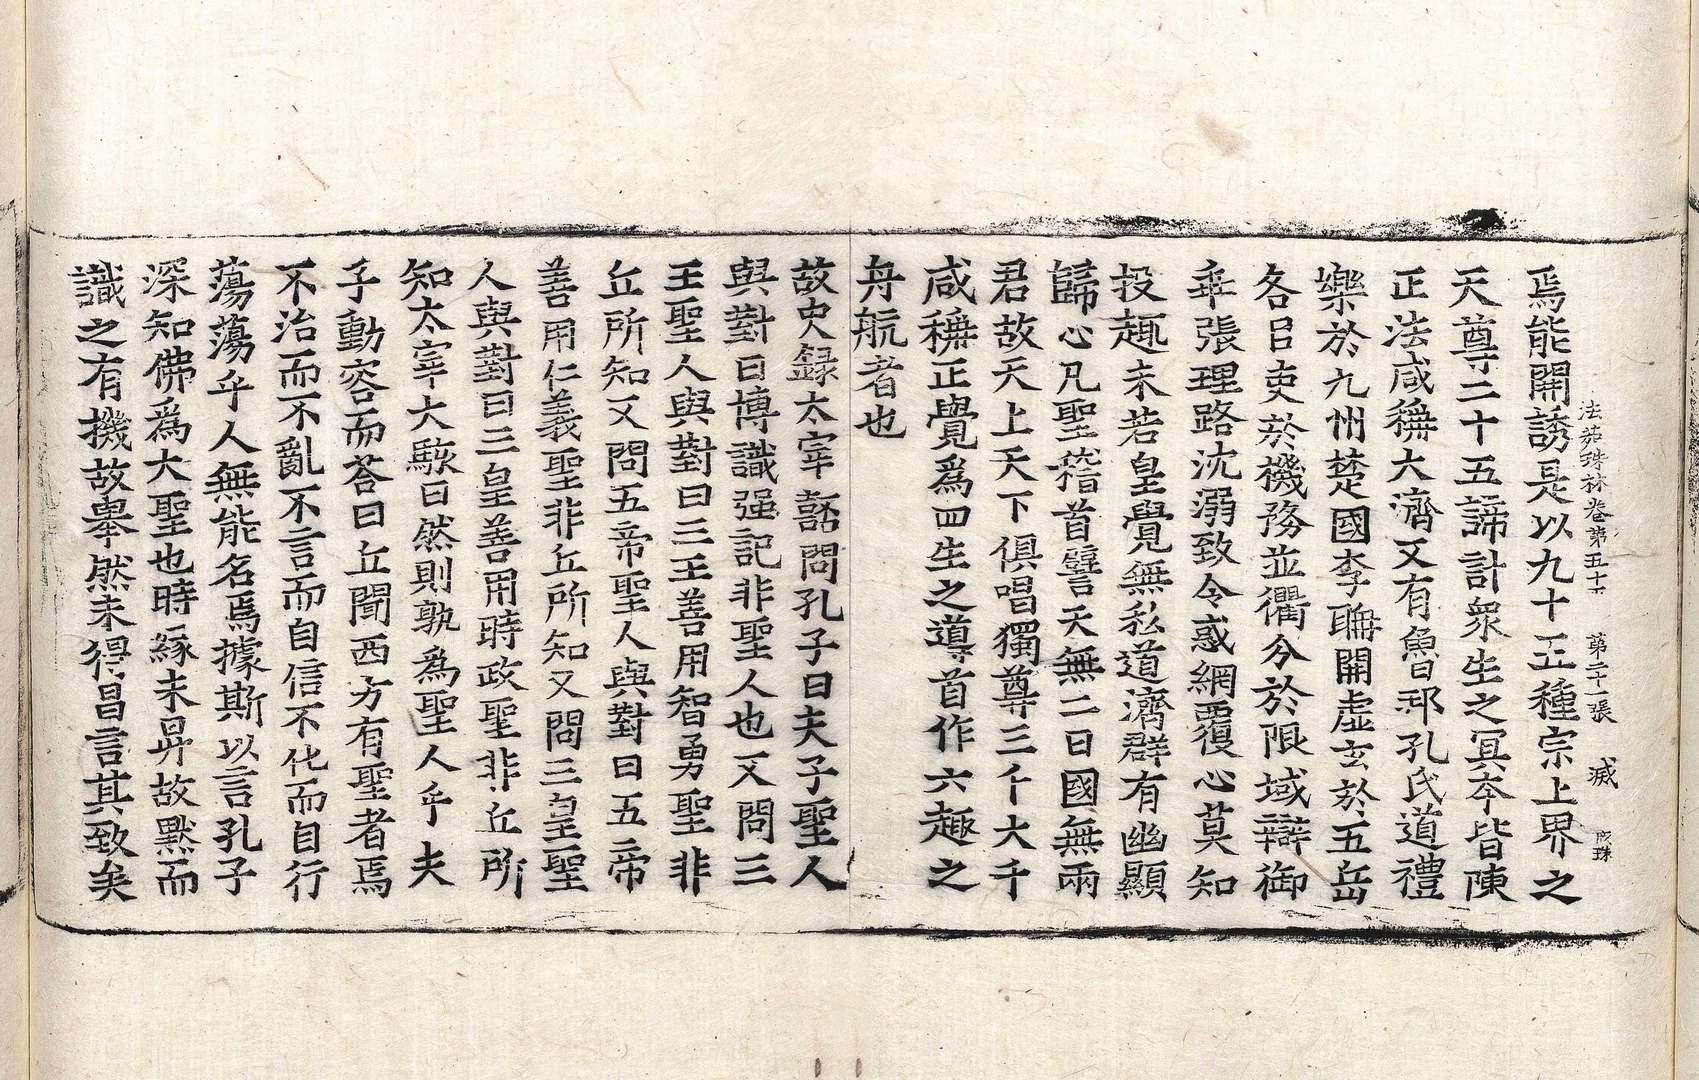 法苑珠林卷第五十五 第二十一張 滅
焉能開誘是以九十五種宗上界之
天尊二十五諦計衆生之冥本皆陳
正法咸稱大濟又有魯邦孔氏道禮
樂於九州楚國李聃開虛玄於五岳
各臣吏於機務並衢分於限域辯御
乖張理路沈溺致令惑網覆心莫知
投趣未若皇覺無私道濟群有幽顯
歸心凡聖稽首譬天無二日國無兩
君故天上天下俱唱獨尊三千大千
咸稱正覺爲四生之導首作六趣之
舟航者也
故史録太宰嚭問孔子曰夫子聖人
與對曰博識强記非聖人也又問三
王聖人與對曰三王善用智勇聖非
丘所知又問五帝聖人與對曰五帝
善用仁義聖非丘所知又問三皇聖
人與對曰三皇善用時政聖非丘所
知太宰大駭曰然則孰爲聖人乎夫
子動容而答曰丘聞西方有聖者焉
不治而不亂不言而自信不化而自行
蕩蕩乎人無能名焉據斯以言孔子
深知佛爲大聖也時緣未昇故默而
識之有機故舉然未得昌言其致矣